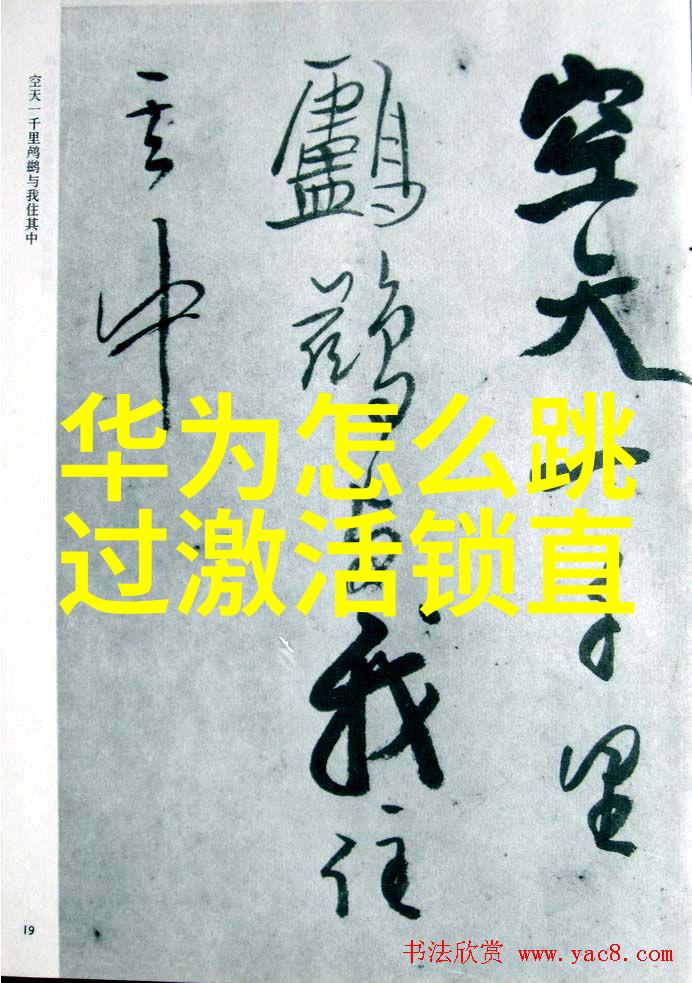 空天一千里
鸕鷀与我住
其中
空天一千里鸬鹚与我住其中
华为怎么跳
过激活锁直
19
书法欣赏 www.yac8.com